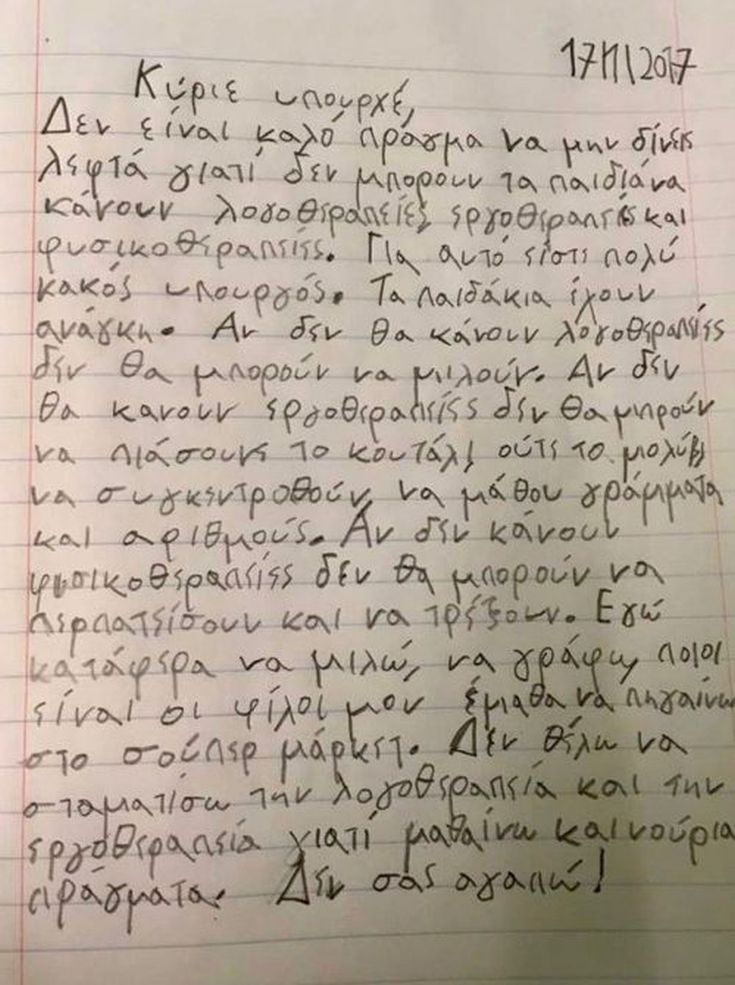 17/1/2017
Κύριε υπουρχέ,
Δεν είναι καλό πράγμα να μην δίνεις
λεφτά γιατί δεν μπορουν τα παιδιά να
κάνουν λογοθεραπείες εργοθεραπείς και
φυσικοθεραπείες. Για αυτό είστε πολύ
κακός υπουργός. Τα παιδάκια έχουν
ανάγκη. Αν δεν θα κάνουν λογοθεραπείες
δεν θα μπορούν να μιλούν. Αν δεν
θα κανουν εργοθεραπείες δεν θα μπρούν
να πιάσουνε το κουτάλι ούτε το μολύβι
να συγκεντροθούν, να μάθου γράμματα
και αριθμούς. Αν δεν κάνουν
φυσικοθεραπείες δεν θα μπορούν να
περπατείσουν και να τρέξουν. Εγώ
κατάφερα να μιλώ, να γράφω, ποιοι
είναι οι φίλοι μου έμαθα να πηγαίνω
στο σούπερ μάρκετ. Δεν θέλω να
σταματίσω την λογοθεραπεία και την
εργοθεραπεία γιατί μαθαίνω καινούρια
πράγματα. Δεν σας αγαπώ!